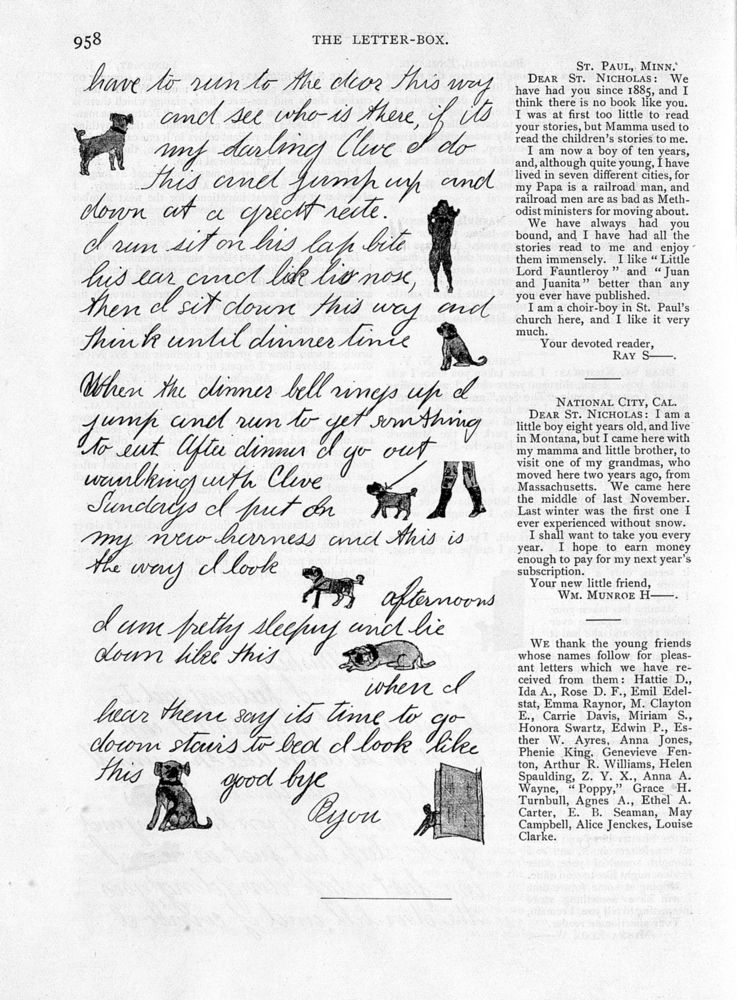 958
THE LETTER-BOX.
have to run to the door this way
and see who is there, if its
my darling Clive I do
this and jump up and
down at a great rate.
I run sit on his lap bite
his ear and lick his nose,
then I sit down this way and
think until dinner time
When the dinner bell rings up I
jump and run to get somthing
to eat After dinner I go out
waulking with Clive
Sundays I put on
my new harrness and this is
the way I look
afternoons
I am pretty sleepy and lie
down like this
when I
hear them say its time to go
down stairs to bed I look like
this good bye
ST. PAUL, MINN.
DEAR ST. NICHOLAS: We
have had you since 1885, and I
think there is no book like you.
I was at first too little to read
your stories, but Mamma used to
read the children's stories to me.
I am now a boy of ten years,
and, although quite young, I have
lived in seven different cities, for
my Papa is a railroad man, and
railroad men are as bad as Meth-
odist ministers for moving about.
We have always had you
bound, and I have had all the
stories read to me and enjoy
them immensely. I like "Little
Lord Fauntleroy" and "Juan
and Juanita" better than any
you ever have published.
I am a choir-boy in St. Paul's
church here, and I like it very
much.
Your devoted reader,
RAY S——.
NATIONAL CITY, CAL.
DEAR ST. NICHOLAS: I am a
little boy eight years old, and live
in Montana, but I came here with
my mamma and little brother, to
visit one of my grandmas, who
moved here two years ago, from
Massachusetts. We came here
the middle of last November.
Last winter was the first one I
ever experienced without snow.
I shall want to take you every
year. I hope to earn money
enough to pay for my next year's
subscription.
Your new little friend,
WM. MUNROE H——.
WE thank the young friends
whose names follow for pleas-
ant letters which we have re-
ceived from them: Hattie D.,
Ida A., Rose D. F., Emil Edel-
stat, Emma Raynor, M. Clayton
E., Carrie Davis, Miriam S.,
Honora Swartz, Edwin P., Es-
ther W. Ayres, Anna Jones,
Phenie King, Genevieve Fen-
ton, Arthur R. Williams, Helen
Spaulding, Z. Y. X., Anna A.
Wayne, "Poppy," Grace H.
Turnbull, Agnes A., Ethel A.
Carter, E. B. Seaman, May
Campbell, Alice Jenckes, Louise
Clarke.